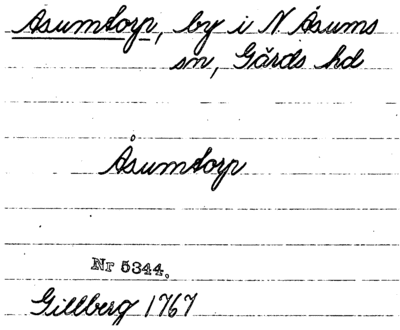 Åsumtorp, by i N Åsums
sn, Gärds hd
Åsumtorp
Nr 5344.
Gillberg 1767